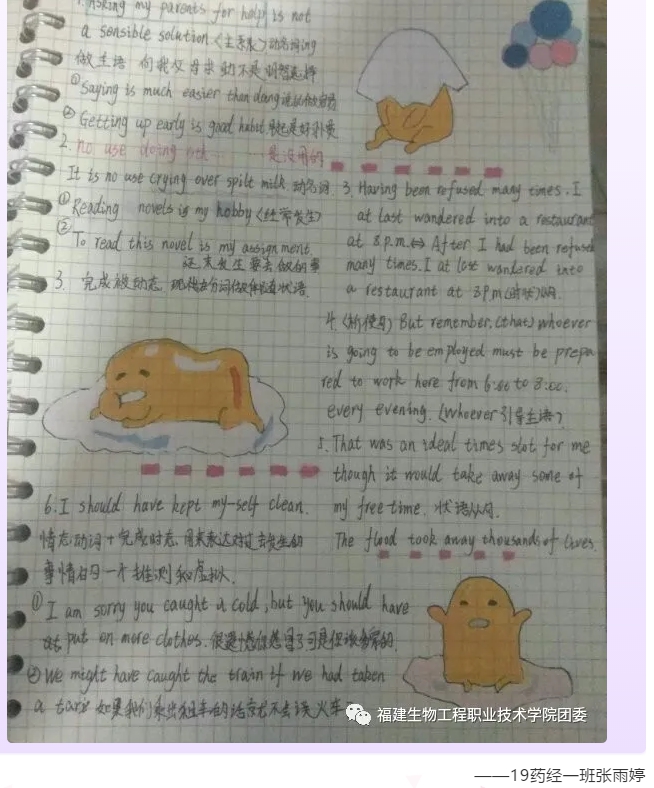 1. Asking my parents for help is not
a sensible solution〈主系表〉动名词ing
做主语 向我父母求助不是明智选择
①Saying is much easier than doing 说比做容易
②Getting up early is good habit 早起是好习惯
2. no use doing sth 是没用的
It is no use crying over spilt milk 动名词
①Reading novels is my hobby〈经常发生〉
②To read this novel is my assignment.
还未发生要去做的事
3. 完成被动态, 现在分词做伴随状语.
3. Having been refused many times. I
at last wandered into a restaurant
at 8 p.m ⇔ After I had been refused
many times. I at last wandered into
a restaurant at 8 p.m
4. (祈使句) But remember. (that) whoever
is going to be employed must be prepa
red to work here from 6:00 to 8:00.
every evening. (whoever引导主语)
5. That was an ideal times slot for me
though it would take away some of
my free time. 状语从句.
The flood took away thousands of lives.
6. I should have kept my-self clean.
情态动词+完成时态, 用来表达对过去发生的
事情的一个推测和虚拟.
①I am sorry you caught a cold, but you should have
put on more clothes. 很遗憾你感冒了可是你该多穿的.
②We might have caught the train if we had taken
a taxi 如果我们乘出租车的话就不会误火车
福建生物工程职业技术学院团委
——19药经一班张雨婷